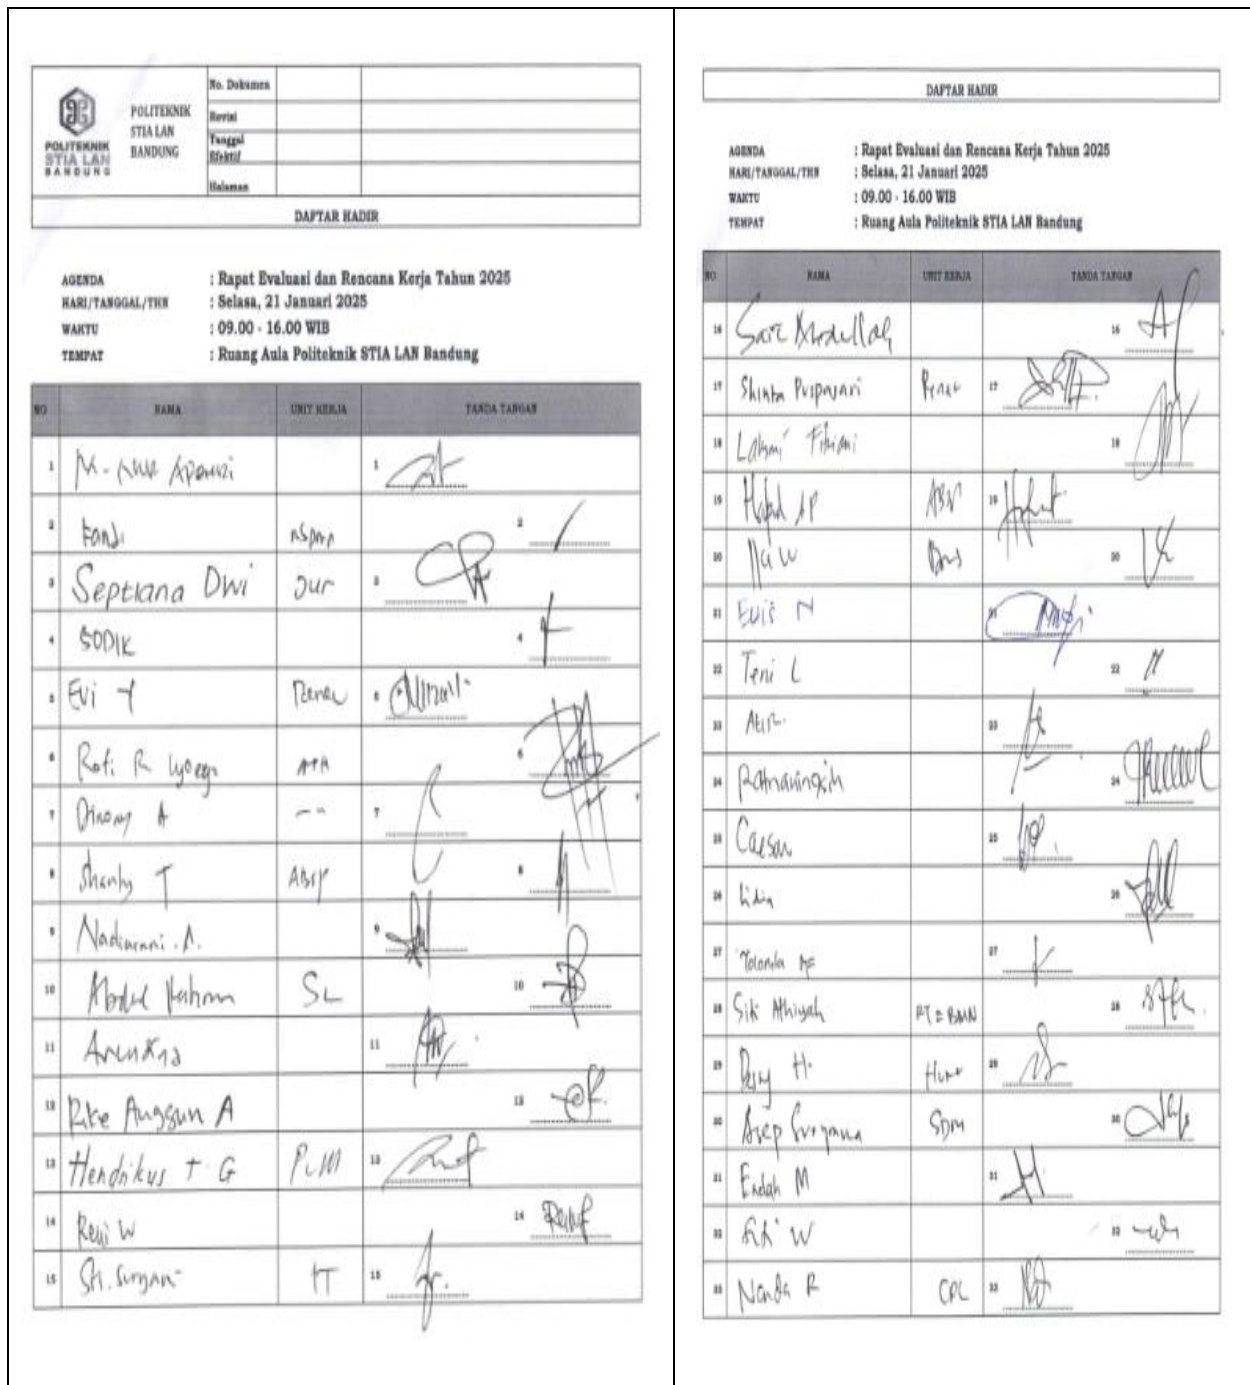 POLITEKNIK
STIA LAN
BANDUNG
POLITEKNIK
STIA LAN
BANDUNG
No. Dokumen
Revisi
Tanggal
Efektif
Halaman
DAFTAR HADIR
AGENDA : Rapat Evaluasi dan Rencana Kerja Tahun 2025
HARI/TANGGAL/THN : Selasa, 21 Januari 2025
WAKTU : 09.00 - 16.00 WIB
TEMPAT : Ruang Aula Politeknik STIA LAN Bandung
NO NAMA UNIT KERJA TANDA TANGAN
1 1
2 Fandi 2
3 Septiana Dwi Jur 3
4 SODIK 4
5 Evi Y 5
6 Rofi R 6
7 A 7
8 Shanty T 8
9 Nadiarani. A. 9
10 Abdul Rahman SL 10
11 11
12 Rike Anggun A 12
13 Hendrikus T. G 13
14 Reni W 14
15 Sri. Suryani IT 15
DAFTAR HADIR
AGENDA : Rapat Evaluasi dan Rencana Kerja Tahun 2025
HARI/TANGGAL/THN : Selasa, 21 Januari 2025
WAKTU : 09.00 - 16.00 WIB
TEMPAT : Ruang Aula Politeknik STIA LAN Bandung
NO NAMA UNIT KERJA TANDA TANGAN
16 Abdullah 16
17 Shinta Puspasari 17
18 Laksmi Fitriani 18
19 AP 19
20 W 20
21 Euis N 21
22 Teni L 22
23 23
24 Ratnaningsih 24
25 Caesar 25
26 Lidia 26
27 27
28 Siti Athiyah RT & BMN 28
29 H. 29
30 Asep Suryana SDM 30
31 Endah M 31
32 W 32
33 Nanda R 33